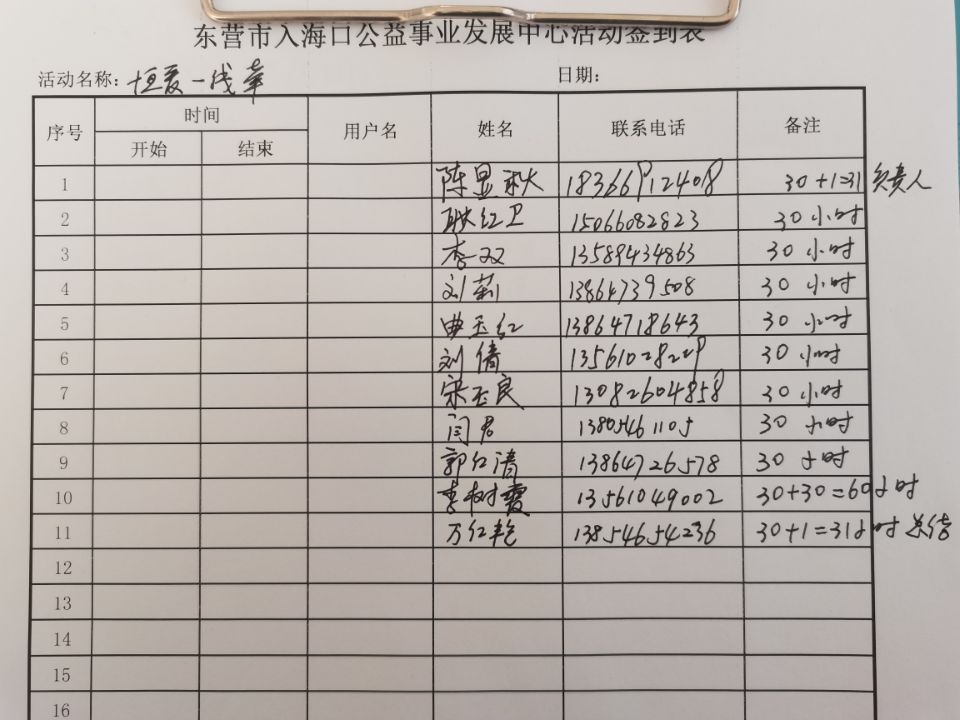 东营市入海口公益事业发展中心活动签到表
活动名称：恒爱一线牵 日期：
序号 时间 用户名 姓名 联系电话 备注
开始 结束
1 陈显秋 18366912408 30+1=31 负责人
2 耿红卫 15066082823 30小时
3 李双 13589434863 30小时
4 刘莉 13864739508 30小时
5 曲玉红 13864718643 30小时
6 刘倩 13561028229 30小时
7 宋玉良 13082604858 30小时
8 闫君 13805461105 30小时
9 郭红清 13864726578 30小时
10 李树霞 13561049002 30+30=60小时
11 万红艳 13854654236 30+1=31小时 总结
12
13
14
15
16